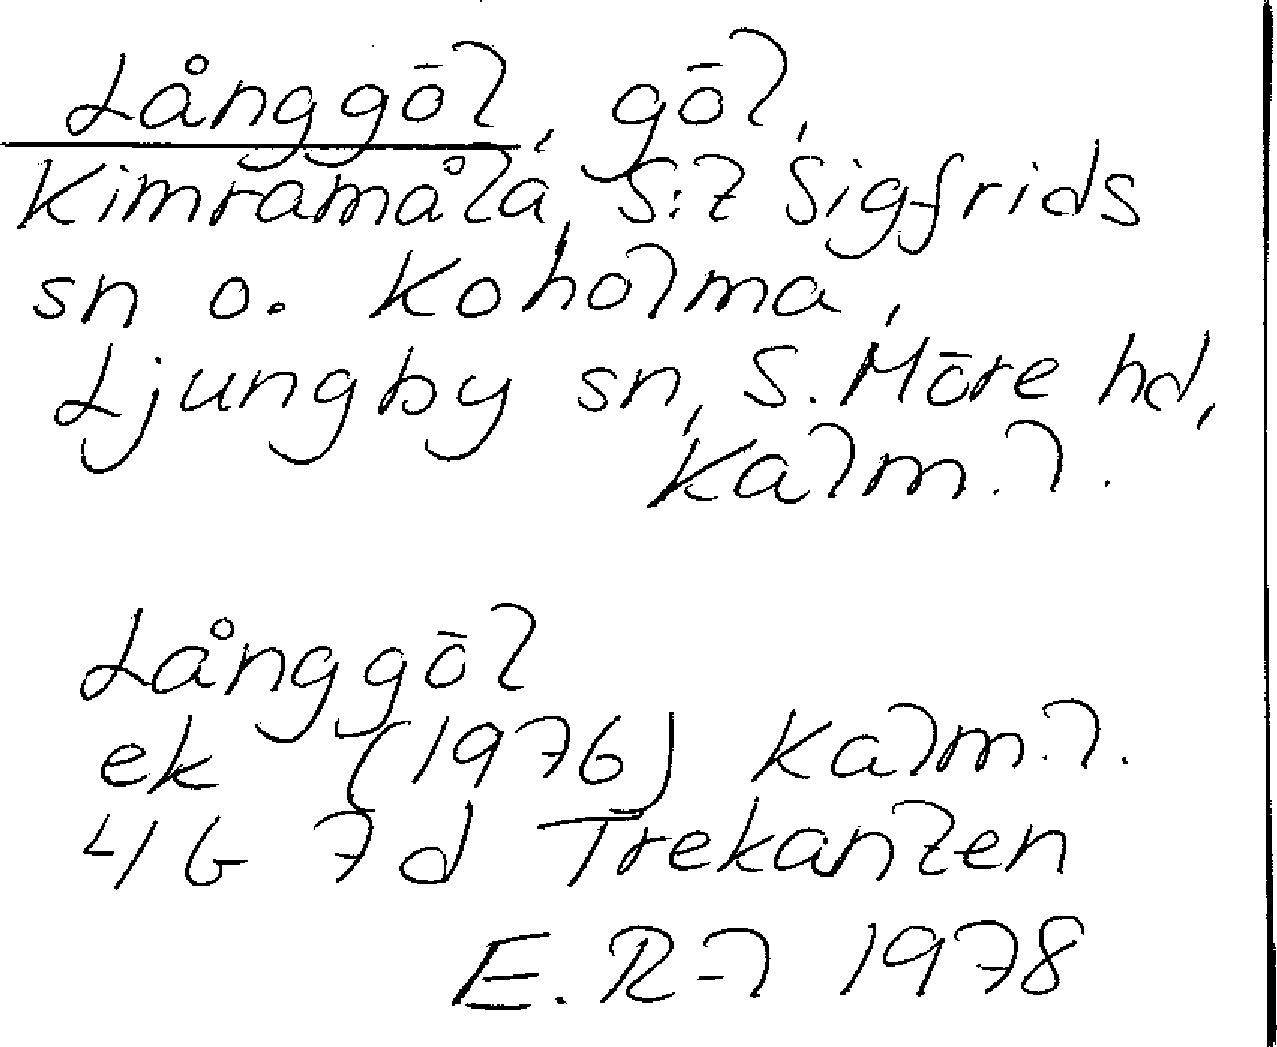 Långgöl, göl,
Kimramåla, S:t Sigfrids
sn o. Koholma,
Ljungby sn, S. Möre hd,
Kalm. l.
Långgöl
ek (1976) Kalm. l.
4G 7d Trekanten
E. R-l 1978